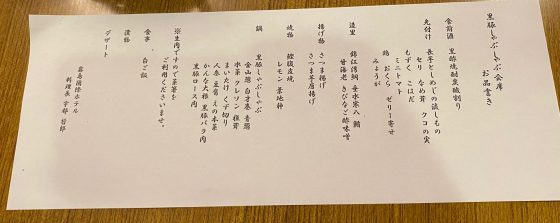 黒豚しゃぶしゃぶ会席
お品書き
食前酒 黒酢焼酎果醂割り
先付け 長芋としめじの浸しもの
セリ なめ茸 クコの実
もずく こはだ
ミニトマト
鶏 おくら ゼリー寄せ
みょうが
造里 錦江湾鯛 垂水寒八 鮪
甘海老 きびなご酢味噌
揚げ物 さつま揚げ
さつま芋唐揚げ
焼物 鰹腹皮焼
レモン
鍋 黒豚しゃぶしゃぶ
金山葱 白才巻 青葱
水菜 クレソン 椎茸
まいたけ くず切り
人参 豆腐 えの木茸
かんな大根 黒豚バラ肉
黒豚ロース肉
※生肉ですので菜箸を
ご利用くださいませ。
食事 白ご飯
漬物
デザート
霧島国際ホテル
料理長 宇都 哲郎